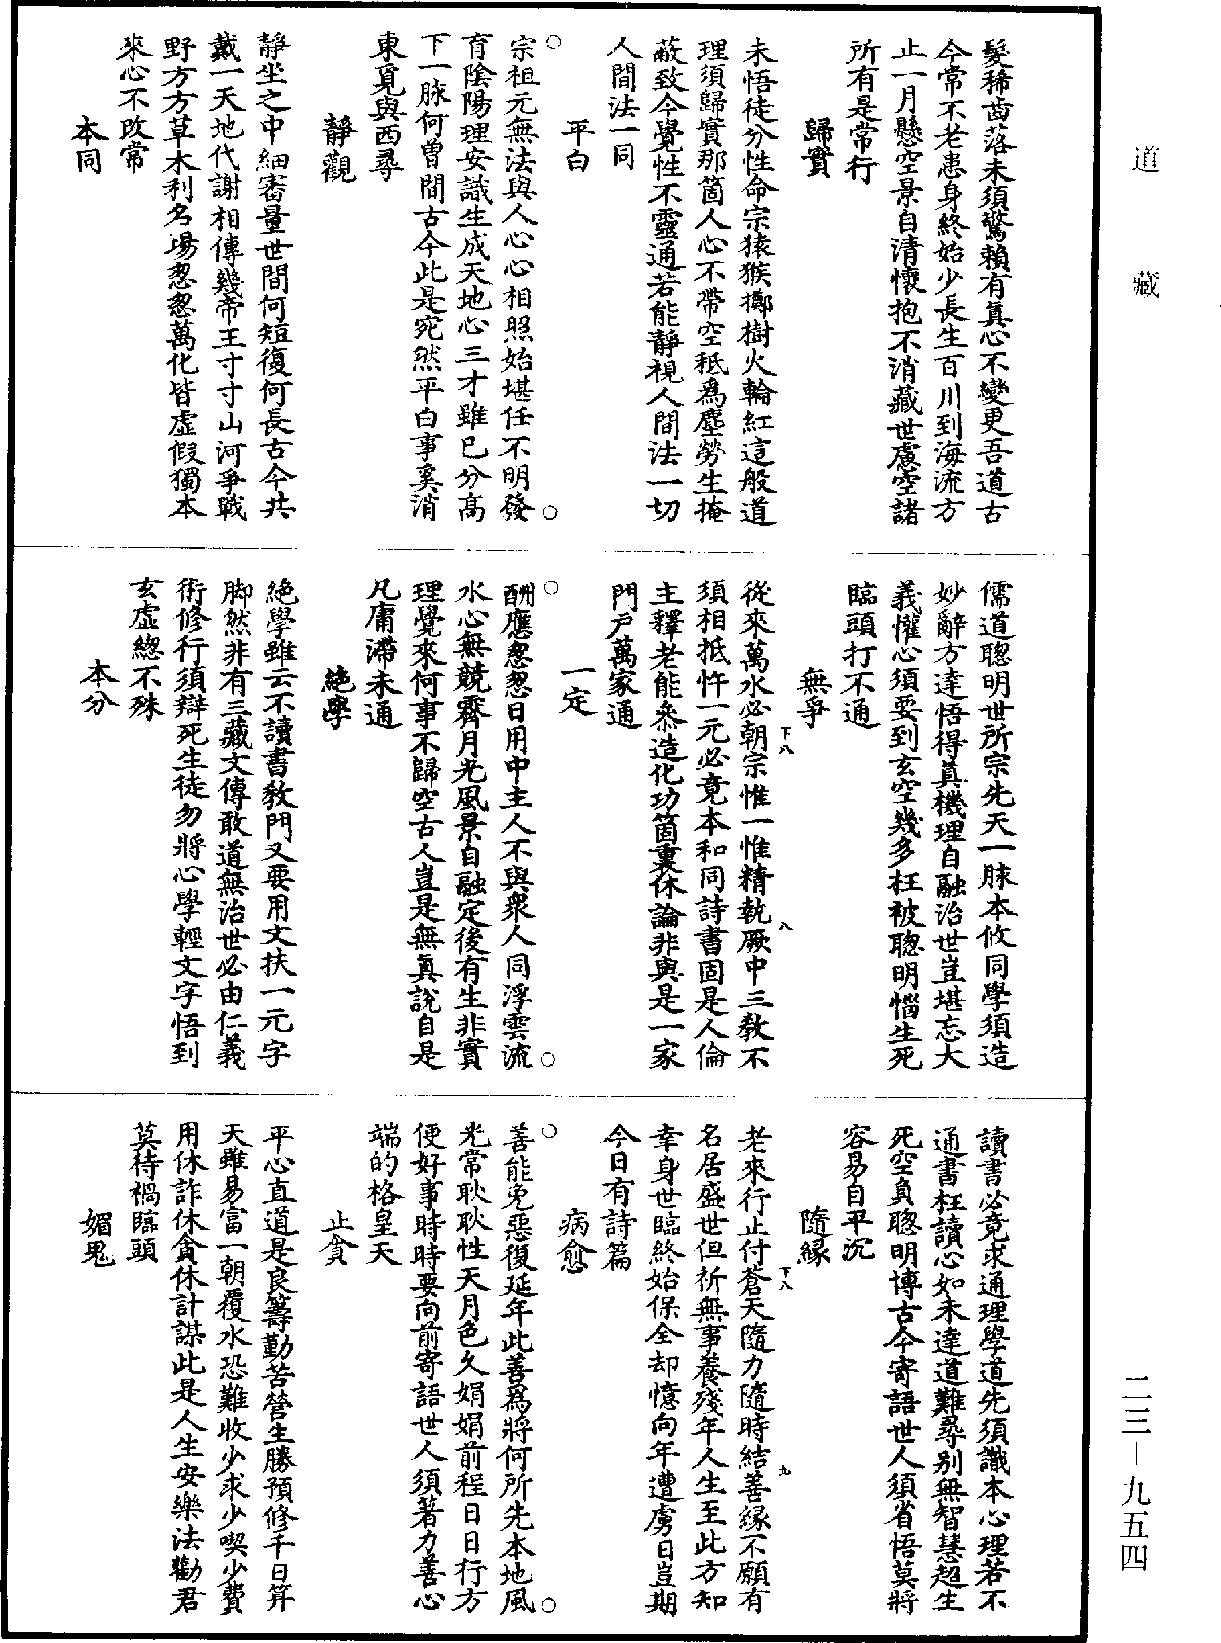 道藏
髮稀齒落未須驚賴有真心不變更吾道古
今常不老患身終始少長生百川到海流方
止一月懸空景自清懷抱不消藏世慮空諸
所有是常行
歸實
未悟徒分性命宗猿猴擲樹火輪紅這般道
理須歸實那箇人心不帶空秖爲塵勞生掩
蔽致令覺性不靈通若能靜視人間法一切
人間法一同
平白
宗祖元無法與人心心相照始堪任不明發
育陰陽理安識生成天地心三才雖已分高
下一脉何曾間古今此是宛然平白事奚消
東覓與西尋
靜觀
靜坐之中細審量世間何短復何長古今共
戴一天地代謝相傳幾帝王寸寸山河爭戰
野方方草木利名場怱怱萬化皆虛假獨本
來心不改常
本同
儒道聰明世所宗先天一脉本攸同學須造
妙辭方達悟得真機理自融治世豈堪忘大
義懽心須要到玄空幾多枉被聰明惱生死
臨頭打不通
無爭
從來萬水必朝宗惟一惟精執厥中三教不
須相抵忤一元必竟本和同詩書固是人倫
主釋老能叅造化功箇裏休論非與是一家
門戶萬家通
一定
酬應怱怱日用中主人不與衆人同浮雲流
水心無競霽月光風景自融定後有生非實
理覺來何事不歸空古人豈是無真說自是
凡庸滯未通
絕學
絕學雖云不讀書教門又要用文扶一元字
脚然非有三藏文傳敢道無治世必由仁義
術修行須辯死生徒勿將心學輕文字悟到
玄虛總不殊
本分
下八
八
讀書必竟求通理學道先須識本心理若不
通書枉讀心如未達道難尋別無智慧超生
死空負聰明博古今寄語世人須省悟莫將
容易自平沉
隨緣
老來行止付蒼天隨力隨時結善緣不願有
名居盛世但祈無事養殘年人生至此方知
幸身世臨終始保全却憶向年遭虜日豈期
今日有詩篇
病愈
善能免惡復延年此善爲將何所先本地風
光常耿耿性天月色久娟娟前程日日行方
便好事時時要向前寄語世人須著力善心
端的格皇天
止貪
平心直道是良籌勤苦營生勝預修千日升
天雖易富一朝覆水恐難收少求少喫少費
用休詐休貪休計謀此是人生安樂法勸君
莫待禍臨頭
媚鬼
下八
九
二三—九五四